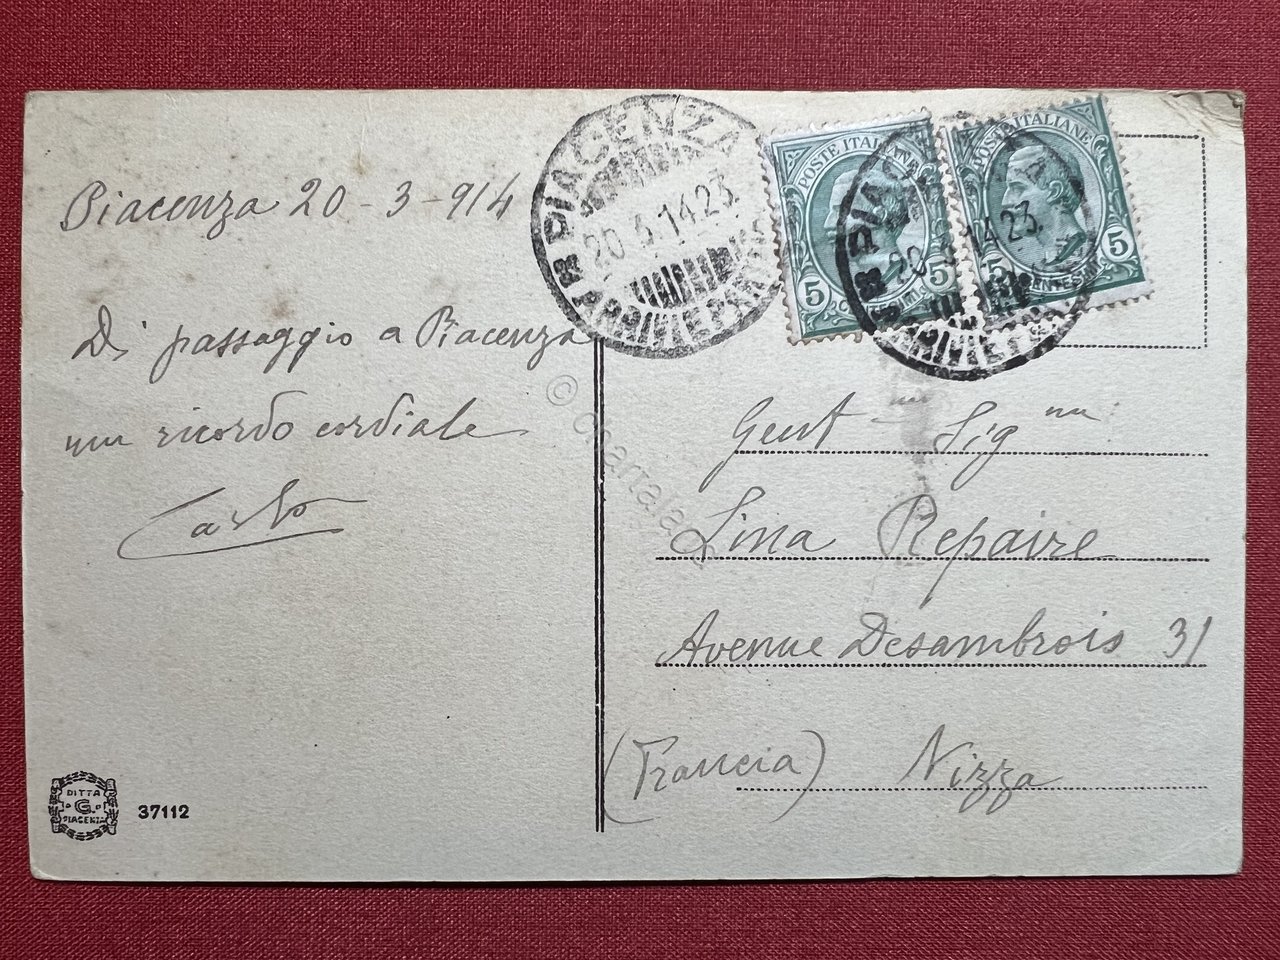 Piacenza 20-3-914
Di passaggio a Piacenza
un ricordo cordiale
Carlo
PIACENZA
20.3.14.23
ARRIVI E PARTENZE
POSTE ITALIANE
5 5
POSTE ITALIANE
5 5
CENTESIMI
PIACENZA
14.23
Gent Sig na
Lina Repaire
Avenue Desambrois 31
(Francia) Nizza
DITTA
G.
PIACENZA
37112
©